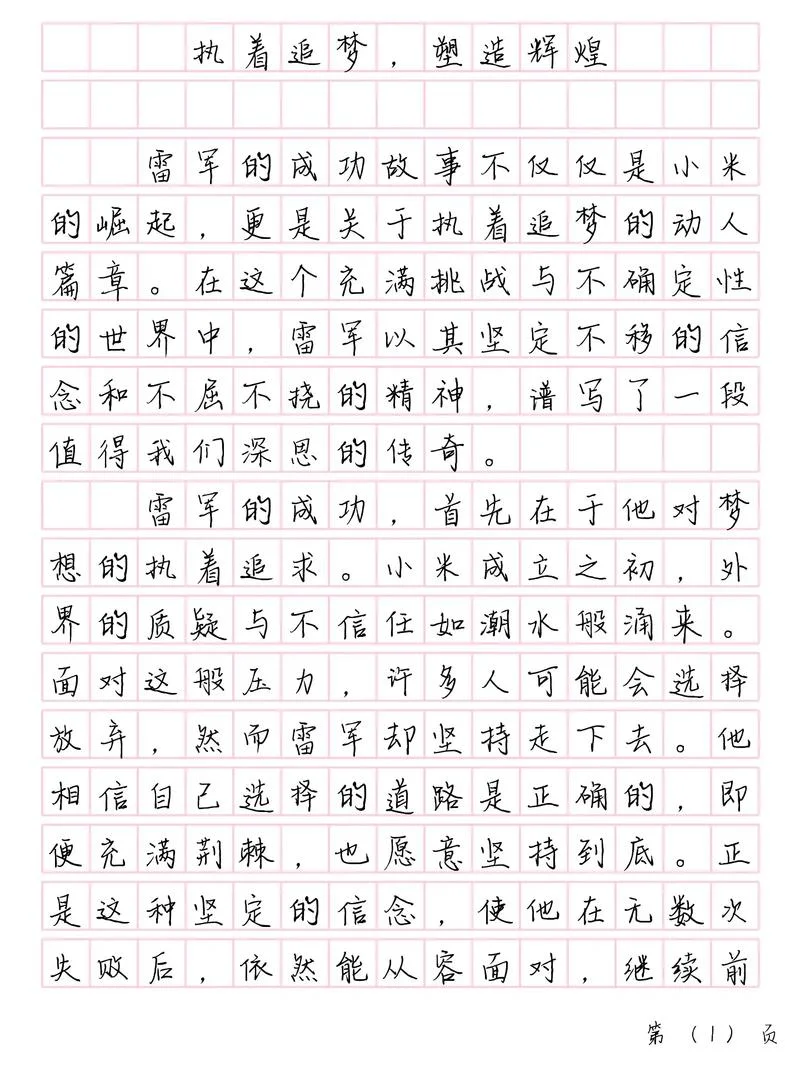 执着追梦，塑造辉煌
雷军的成功故事不仅仅是小米
的崛起，更是关于执着追梦的动人
篇章。在这个充满挑战与不确定性
的世界中，雷军以其坚定不移的信
念和不屈不挠的精神，谱写了一段
值得我们深思的传奇。
雷军的成功，首先在于他对梦
想的执着追求。小米成立之初，外
界的质疑与不信任如潮水般涌来。
面对这般压力，许多人可能会选择
放弃，然而雷军却坚持走下去。他
相信自己选择的道路是正确的，即
便充满荆棘，也愿意坚持到底。正
是这种坚定的信念，使他在无数次
失败后，依然能从容面对，继续前
第（1）页